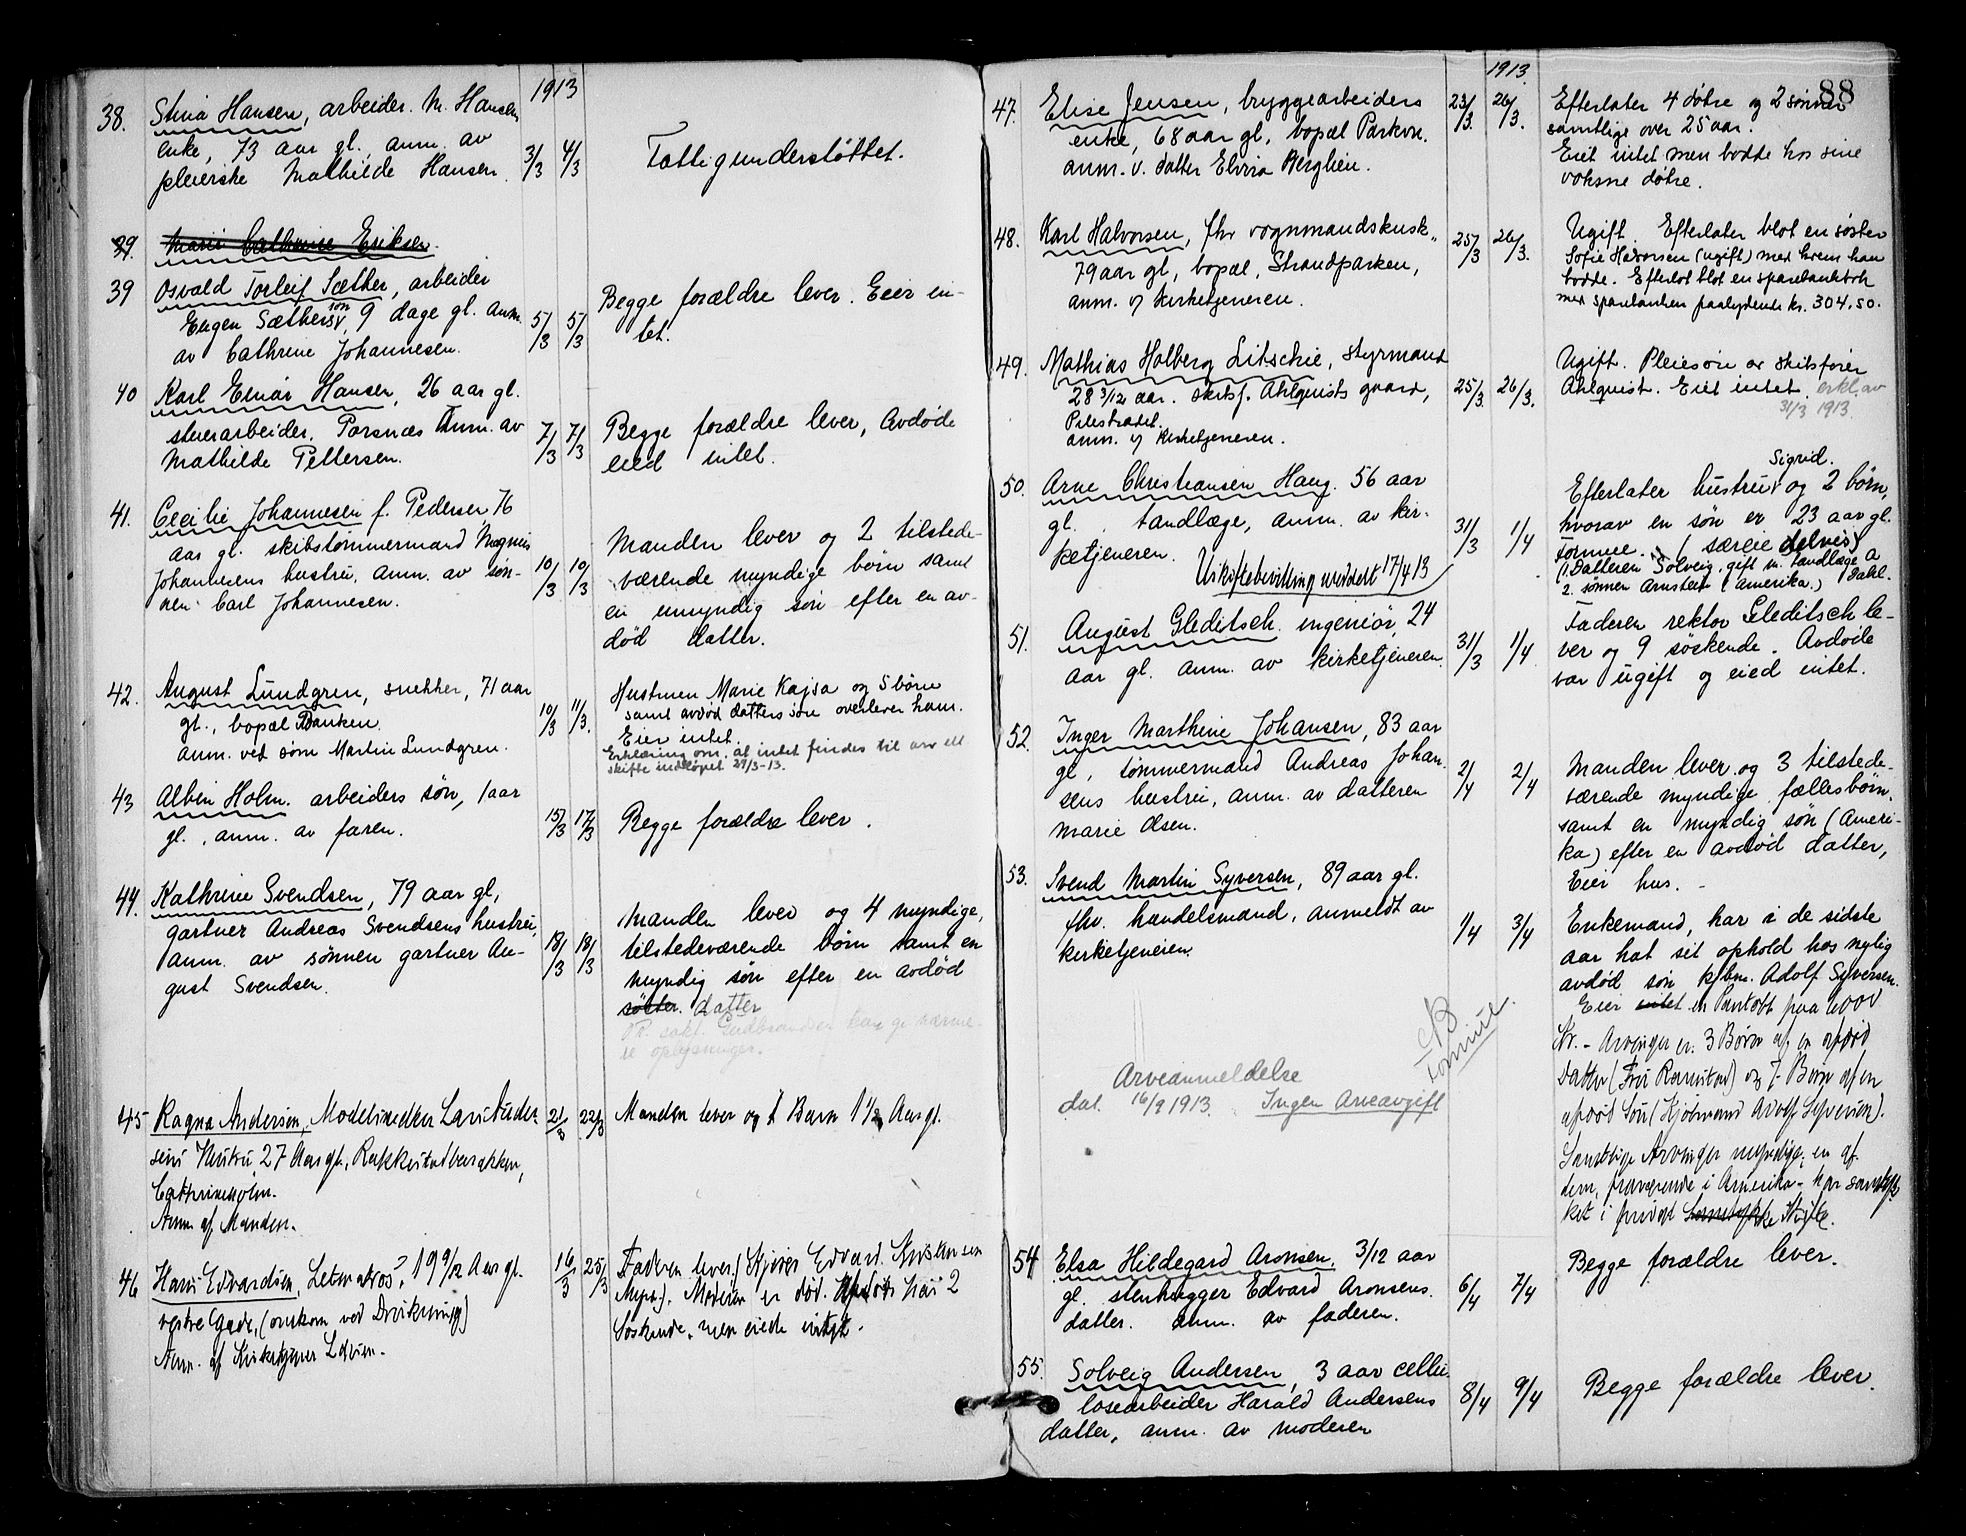 1913
38. Stina Hansen, arbeider. M. Hansens
enke, 73 aar gl., anm. av
pleierske Mathilde Hansen. 3/3 4/3
Fattigunderstøttet.
39. Marie Cathrine Eriksen.
39 Osvald Torleif Sæther, arbeider
Eugen Sæthers søn, 9 dage gl. anm.
av Cathrine Johannesen. 5/3 5/3
Begge forældre lever. Eier in-
tet.
40 Karl Einar Hansen, 26 aar gl.
stuerarbeider, Porsnæs Anm. av
Mathilde Pettersen. 7/3 7/3
Begge forældre lever, Avdøde
eied intet.
41. Cecilie Johannesen f. Pedersen, 76
aar gl. skibstømmermand Magnus
Johannesens hustru, anm. av søn-
nen Carl Johannesen. 10/3 10/3
Manden lever og 2 tilstede-
værende myndige børn samt
en umyndig søn efter en av-
død datter.
42. August Lundgren, snekker, 71 aar
gl., bopæl Banken.
anm. ved søn Martin Lundgren. 10/3 11/3.
Hustruen Marie Kajsa og 5 børn
samt avdød datters søn overlever ham.
Eier intet.
Erklæring om, at intet findes til arv ell.
skifte indløpet 29/3-13.
43 Albin Holm. arbeiders søn, 1 aar
gl., anm. av faren. 15/3 17/3
Begge forældre lever.
44. Kathrine Svendsen, 79 aar gl,
gartner Andreas Svendsens hustru,
anm. av sønnen gartner Au-
gust Svendsen. 18/3 18/3
Manden lever og 4 myndige,
tilstedeværende børn samt en
myndig søn efter en avdød
søster. datter
OR. sakf. Gudbrandsen kan gi nærme-
re oplysninger.
45 Ragna Andersen, Modelsnedker Lars Ander-
sens Hustru, 27 Aar gl., Rakkestadbarakken,
Cathrineholm.
Anm. af Manden. 21/3 22/3
Manden lever og 1 Barn 1 1/2 Aar gl.
46 Hans Edvardsen, Letmatros, 19 9/12 Aar gl.
vestre Gade, (omkom ved Drukning)
Anm. af Kirketjener 16/3 25/3
Faderen lever. Edvard Kristiansen
Moderen er død. Afdøde har 2
Søskende, men eiede intet.
1913. 88
47. Elise Jensen, bryggearbeiders
enke, 68 aar gl, bopæl Parkvn.
anm. v. datter Elvira Berglien. 23/3. 26/3.
Efterlater 4 døtre og 2 sønner
samtlige over 25 aar.
Eiet intet men bodde hos sine
voksne døtre.
48. Karl Halvorsen, fhv vognmandskusk,
79 aar gl, bopæl, Strandparken,
anm. v/ Kirketjeneren. 25/3 26/3.
Ugift. Efterlater blot en søster
Sofie Halvorsen (ugift) med hvem han
bodde. Efterlot blot en sparebankbok
med sparebanken paalydende kr. 304.50.
49. Mathias Holberg Litschie, styrmand
28 3/12 aar. skibsf. Ahlquists gaard,
Pilestrædet.
anm. v/ Kirketjeneren. 25/3. 26/3.
Ugift. Pleiesøn av skibsfører
Ahlquist. Eiet intet. erkl. av
31/3 1913.
50. Arne Christiansen Haug. 56 aar
gl. tandlæge, anm. av kir-
ketjeneren. 31/3 1/4
Uskiftebevilling meddelt 17/4 13
Sigrid.
Efterlater hustru og 2 børn,
hvorav en søn er 23 aar gl.
Formue. (særeie delvis)
(1. Datteren Solveig, gift m. tandlæge A
Dahl.
2. sønnen Arnstein (Amerika.)
51. August Gleditsch. ingeniør, 24
aar gl. anm. av kirketjeneren. 31/3 1/4
Faderen rektor Gleditsch le-
ver og 9 søskende. Avdøde
var ugift og eied intet.
52. Inger Marthine Johansen, 83 aar
gl, tømmermand Andreas Johan-
sens hustru, anm. av datteren
Marie Olsen. 2/4 2/4
Manden lever og 3 tilstede-
værende myndige fællesbørn.
samt en myndig søn (Ameri-
ka) efter en avdød datter,
Eier hus.
53. Svend Martin Syversen, 89 aar gl.
fhv. handelsmand, anmeldt av
kirketjeneren. 1/4 3/4
NB
Formue.
Arveanmeldelse
dat. 16/9 1913. Ingen Arveavgift
Enkemand, har i de sidste
aar hat sit ophold hos nylig
avdød søn kjbm. Adolf Syversen.
Eier intet en Pantobl paa 6000
Kr. - Arvinger er 3 Børn af en afdød
Datter (Fru Ramstad) og 7 Børn af en
afdød Søn (Kjøbmand Adolf Syversen).
Samtlige Arvinger myndige; en af
dem, fraværende i Amerika - har samtyk
ket i privat Samtykke Skifte.
54 Elsa Hildegard Aronsen, 3/12 aar
gl. stenhugger Edvard Aronsens
datter. anm. av faderen. 6/4 7/4
Begge forældre lever.
55. Solveig Andersen, 3 aar cellu-
losearbeider Harald Andersens
datter, anm. av moderen 8/4 9/4
Begge forældre lever.